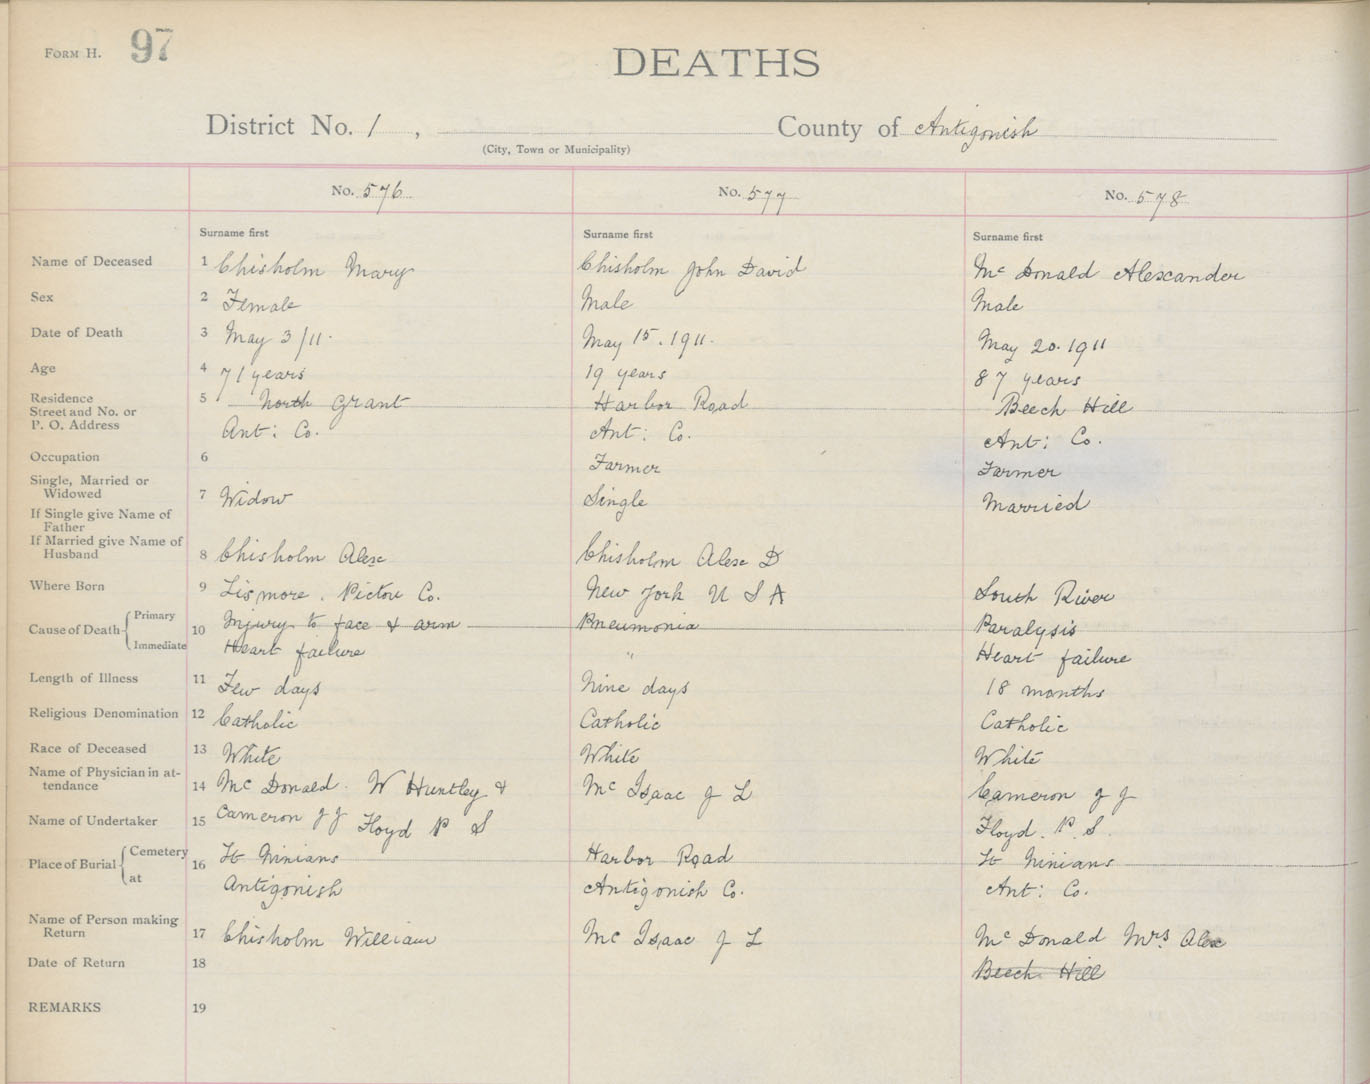 FORM H. 97
DEATHS
District No. 1 , County of Antigonish
(City, Town or Municipality)
No. 576 No. 577 No. 578
Surname first Surname first Surname first
Name of Deceased 1 Chisholm Mary Chisholm John David Mc Donald Alexander
Sex 2 Female Male Male
Date of Death 3 May 3/11. May 15. 1911. May 20. 1911
Age 4 71 years 19 years 87 years
Residence 5 North Grant Harbor Road Beech Hill
Street and No. or
P. O. Address Ant: Co. Ant: Co. Ant: Co.
Occupation 6 Farmer Farmer
Single, Married or
Widowed 7 Widow Single Married
If Single give Name of
Father
If Married give Name of
Husband 8 Chisholm Alex Chisholm Alex D
Where Born 9 Lismore. Pictou Co. New York U S A South River
Cause of Death Primary 10 Injury to face & arm Pneumonia Paralysis
Immediate Heart failure " Heart failure
Length of Illness 11 Few days Nine days 18 months
Religious Denomination 12 Catholic Catholic Catholic
Race of Deceased 13 White White White
Name of Physician in at-
tendance 14 Mc Donald. W Huntley & Mc Isaac J L Cameron J J
Name of Undertaker 15 Cameron J J Floyd P S Floyd. P. S.
Place of Burial Cemetery 16 St Ninians Harbor Road St Ninians
at Antigonish Antigonish Co. Ant: Co.
Name of Person making
Return 17 Chisholm William Mc Isaac J L Mc Donald Mrs. Alex
Date of Return 18 Beech Hill
REMARKS 19